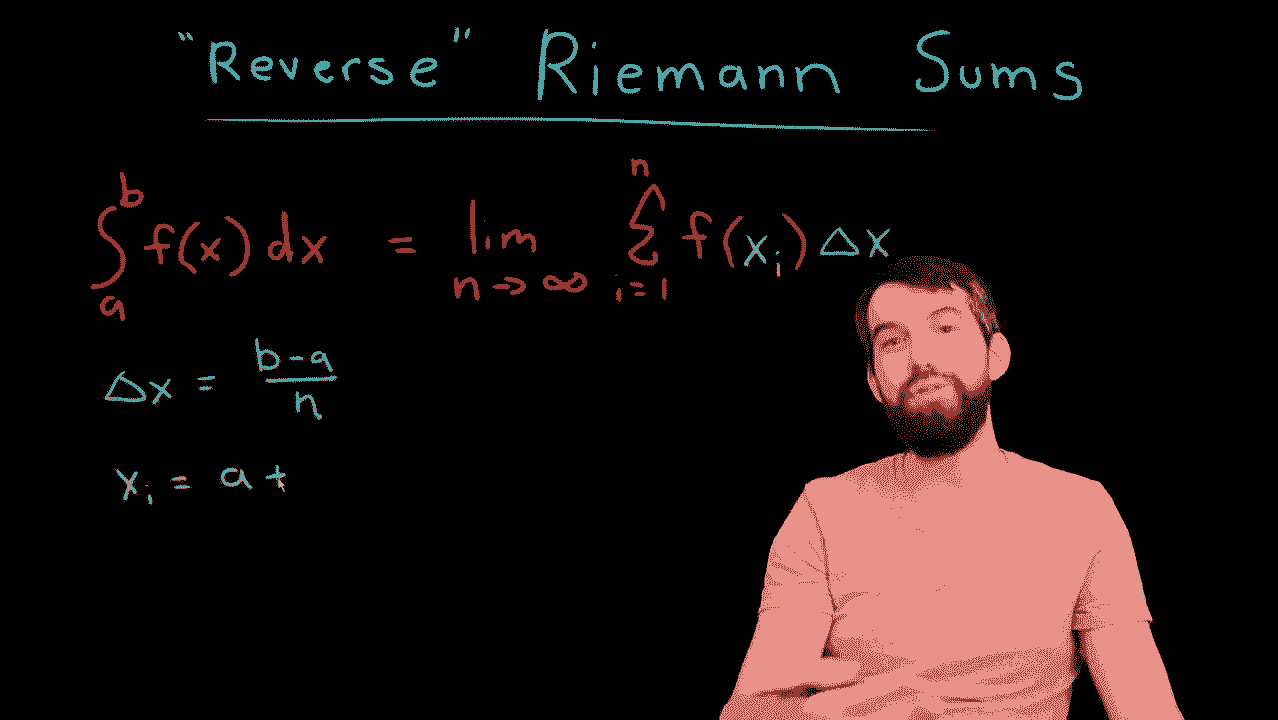 "Reverse" Riemann Sums
∫_a^b f(x) dx = lim_{n→∞} Σ_{i=1}^n f(x_i) Δx
Δx = (b-a)/n
x_i = a +